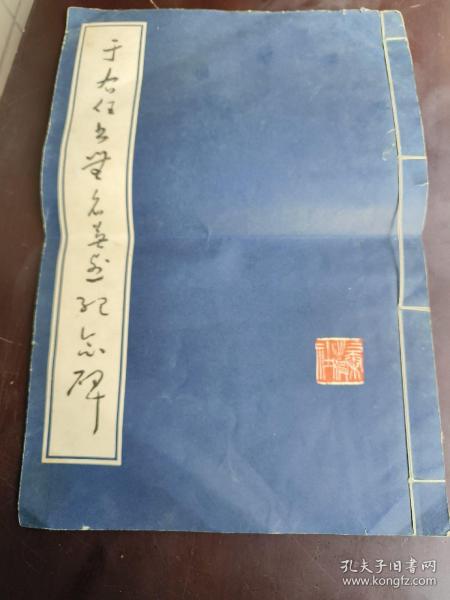 于右任书无名英烈纪念碑
孔夫子旧书网
www.kongfz.com